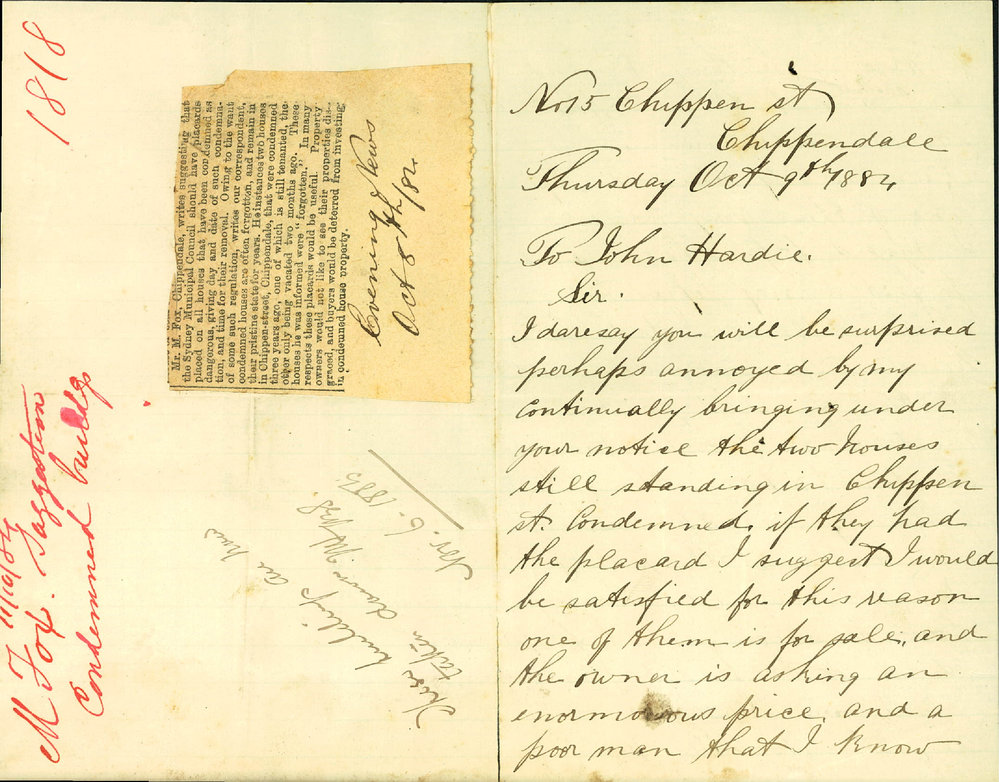 1818
M Fox. 11/10/84
Suggestion
Condemned buildgs
Mr. M. Fox, Chippendale, writes suggesting that
the Sydney Municipal Council should have placards
placed on all houses that have been condemned as
dangerous, giving day and date of such condemna-
tion, and time for their removal. Owing to the want
of some such regulation, writes our correspondent,
condemned houses are often forgotton, and remain in
their pristine state for years. He instances two houses
in Chippen-street, Chippendale, that were condemned
three years ago, one of which is still tenanted, the
other only being vacated two months ago. These
houses he was informed were "forgotten." In many
respects these placards would be useful. Property
owners would not like to see their properties dis-
graced, and buyers would be deterred from investing
in condemned house property.
Evening News
Oct 8th/84
These buildings are now
taken down
Nov. 6. 1885
No 15 Chippen st
Chippendale
Thursday Oct 9th 1884
To John Hardie.
Sir.
I daresay you will be surprised
perhaps annoyed by my
continually bringing under
your notice the two houses
still standing in Chippen
st. Condemned. if they had
the placard I suggest I would
be satisfied for this reason
one of them is for sale, and
the owner is asking an
enormorous price, and a
poor man that I know